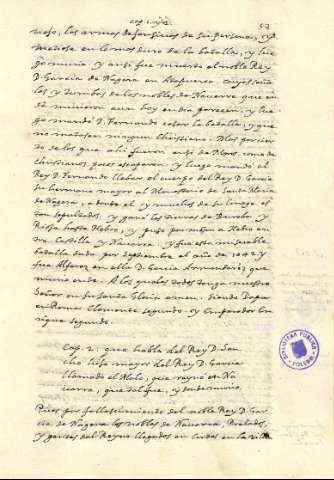 Cap. 1.
53
uoso, las armas desafiuciò de su persona, y se
metiose en lo mas duro de la batalla, y lue
go murio y ansi fue muerto el noble Rey
D. Garcia de Nagera en Atapuerca
los y tumbas de los nobles de Nauarra que en
de murieron aun hoy en dia parecen: y lue
go mandò D. Fernando cesar la batalla, y que
no matasen ningun christiano: Mas por cier
to de los que ahi fueron ansi de Moros, como de
christianos pocos escaparon: y luego mandò el
Rey D. Fernando llebar el cuerpo del Rey D. Garcia
su hermano mayor al Monasterio de Santa Maria
de Nagera, a donde el y muchos de su linage es
tan sepultados. y ganò las tierras de Bureba y
Rioja hasta Hebro, y puso por mojon a Hebro en
tre Castilla y Nauarra. y fue esta miserable
batalla dada por Septiembre el año de
fue Alferez en ella D. Garcia que
murio ende: A los quales todos tenga nuestro
Señor en su Santa Gloria amen. siendo Papa
en Roma Clemente segundo. y Emperador En
rique segundo.
Cap. 2. que habla del Rey D. San
cho hijo mayor del Rey D. Garcia
llamado el Noble, que reynò en Na
uarra, que tal fue, y sendemurio.
Pues por fallescimiento del noble Rey D. Gar
cia de Nagera los nobles de Nauarra, Prelados,
y gentes del Reyno llegados en Cortes en la villa
BIBLIOTECA PUBLICA
TOLEDO